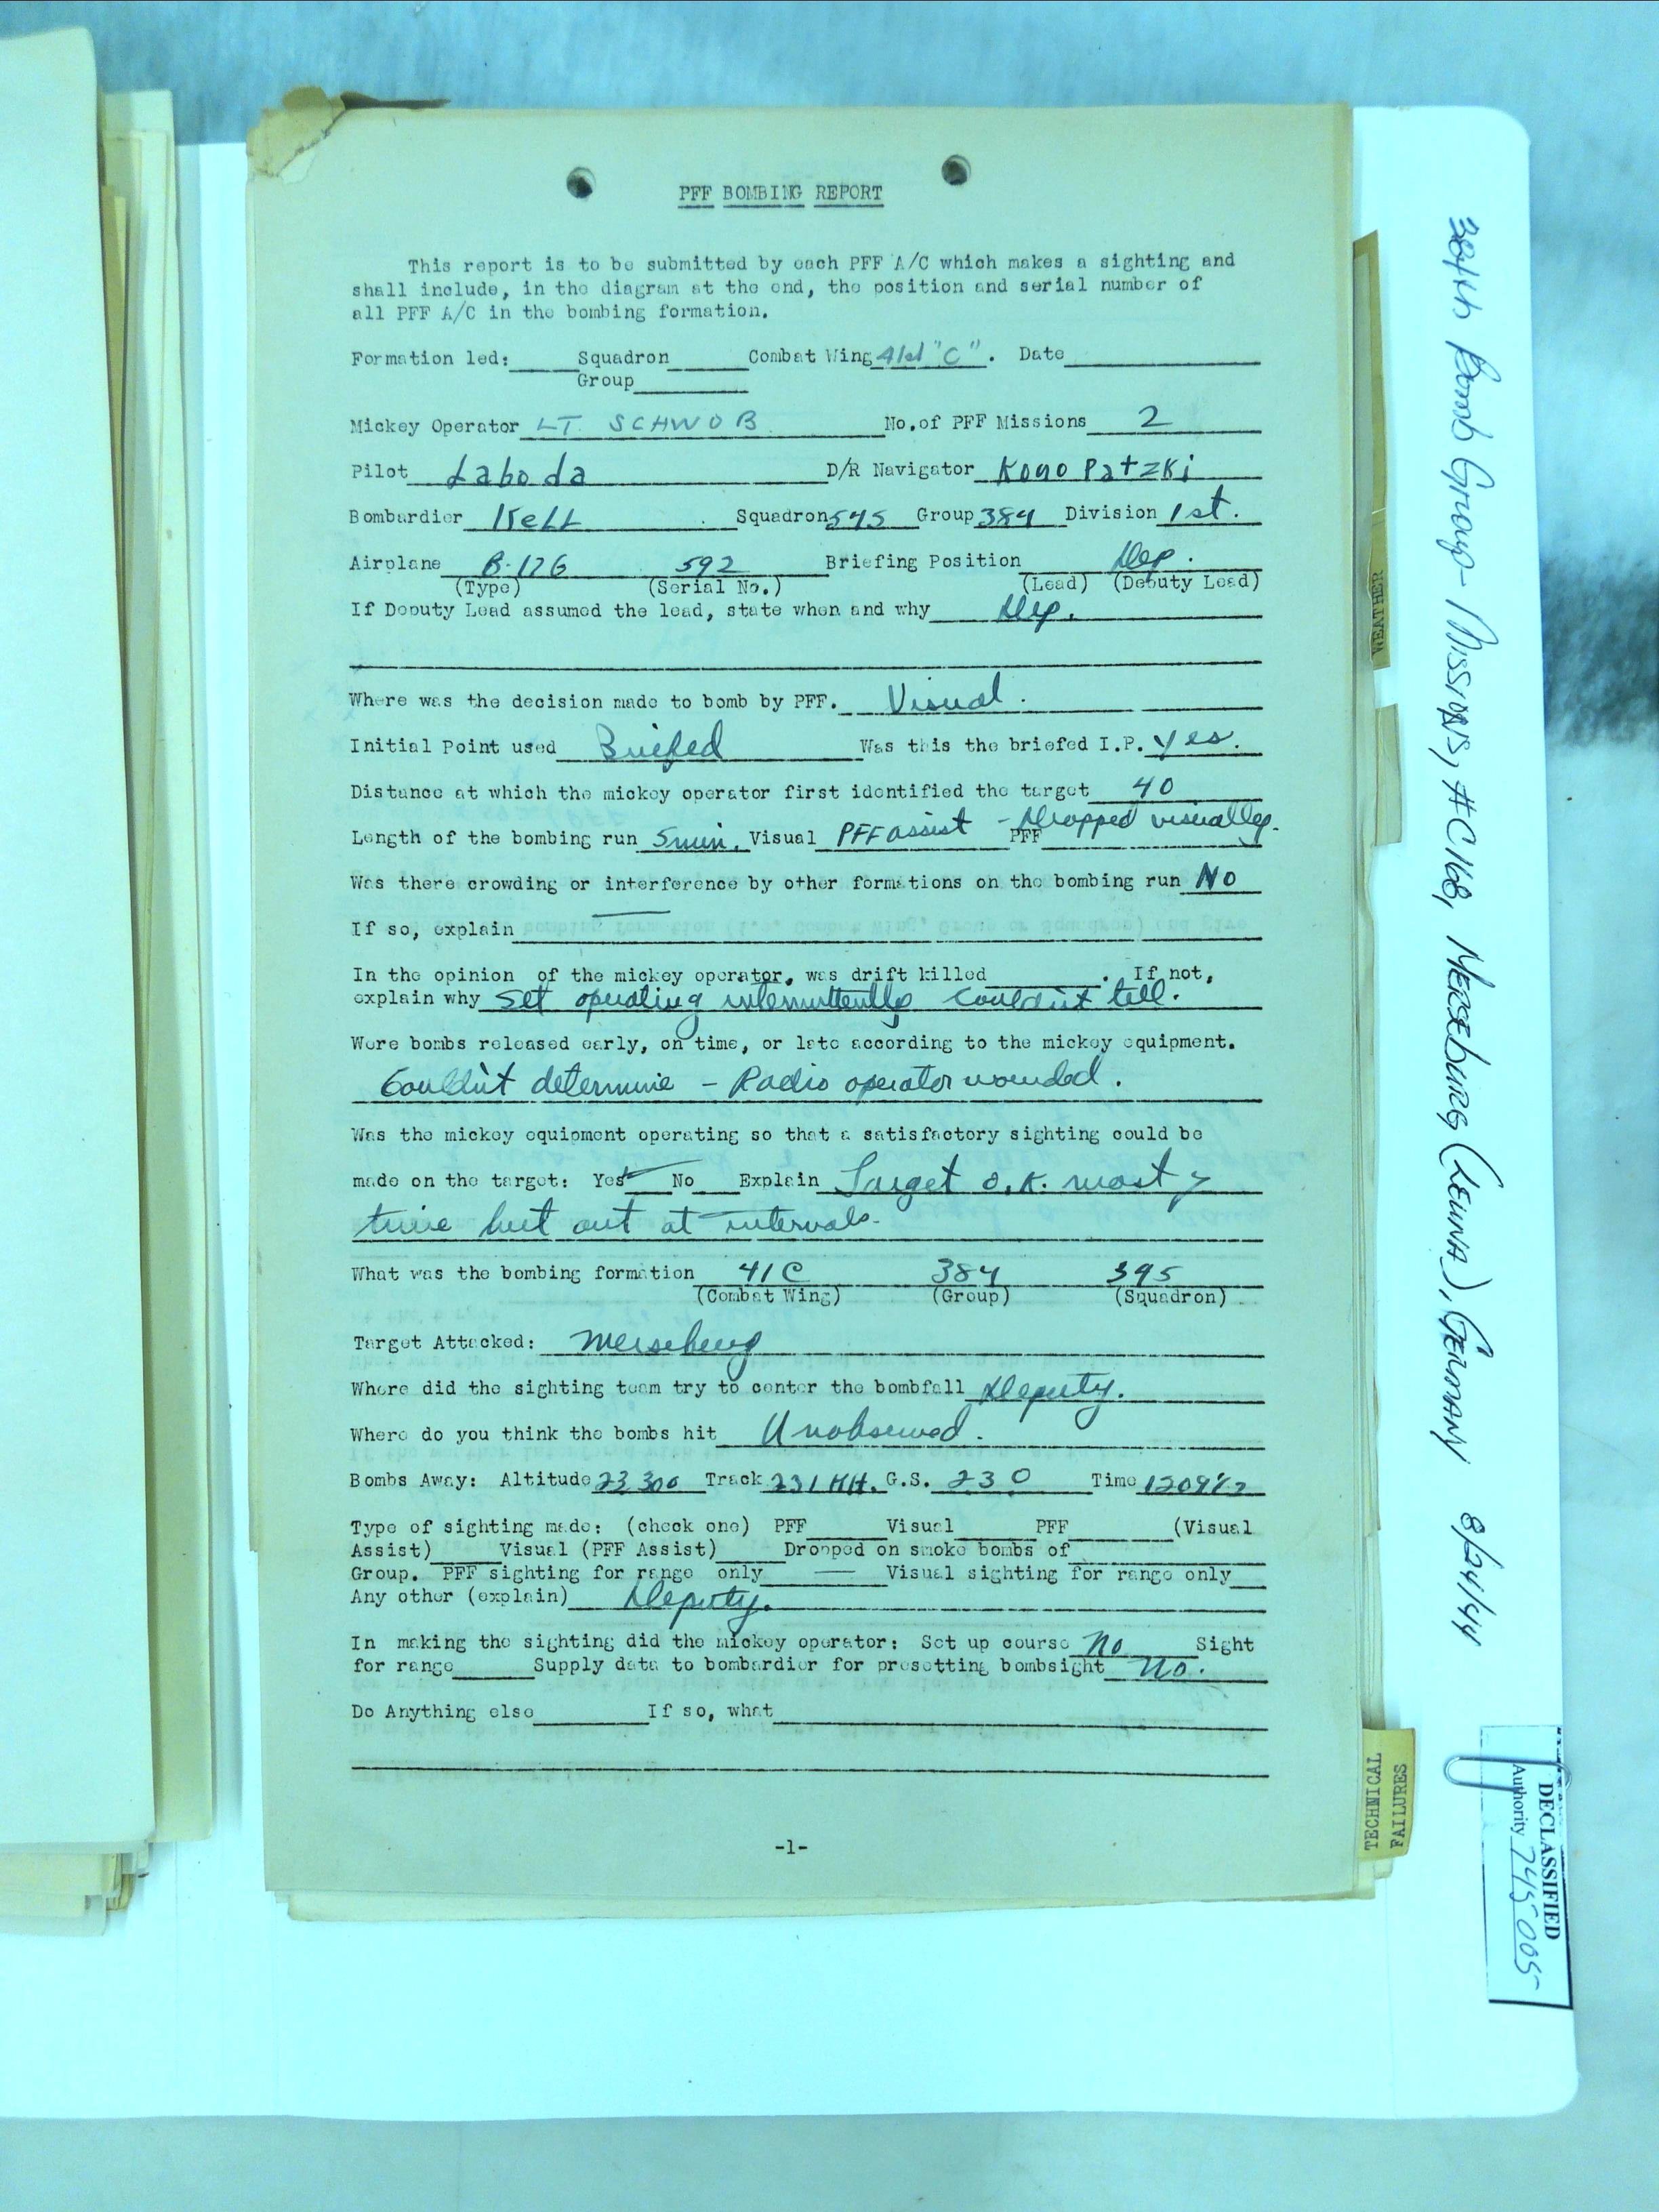 PFF BOMBING REPORT
This report is to be submitted by each PFF A/C which makes a sighting and
shall include, in the diagram at the end, the position and serial number of
all PFF A/C in the bombing formation.
Formation led: Squadron Combat Wing 41st "C". Date
Group
Mickey Operator LT. SCHWOB No. of PFF Missions 2
Pilot Laboda D/R Navigator KonoPatzki
Bombardier Kell Squadron 545 Group 384 Division 1st.
Airplane B-17G 592 Briefing Position Dep.
(Type) (Serial No.) (Lead) (Deputy Lead)
If Deputy Lead assumed the lead, state when and why Dep.
Where was the decision made to bomb by PFF. Visual.
Initial Point used Briefed Was this the briefed I.P. yes.
Distance at which the mickey operator first identified the target 40
Length of the bombing run 5 min. Visual PFF assist - Dropped visually. PFF
Was there crowding or interference by other formations on the bombing run NO
If so, explain
In the opinion of the mickey operator, was drift killed . If not,
explain why set operating intermittently couldn't tell.
Were bombs released early, on time, or late according to the mickey equipment.
Couldn't determine - Radio operator wounded.
Was the mickey equipment operating so that a satisfactory sighting could be
made on the target: Yes No Explain Target o.k. most
time but out at intervals.
What was the bombing formation 41C 384
(Combat Wing) (Group) (Squadron)
Target Attacked: Merseburg
Where did the sighting team try to center the bombfall Deputy.
Where do you think the bombs hit Unobserved.
Bombs Away: Altitude 23,300 Track 231 G.S. 230 Time 1209 1/2
Type of sighting made: (check one) PFF Visual PFF (Visual
Assist) Visual (PFF Assist) Dropped on smoke bombs of
Group. PFF sighting for range only — Visual sighting for range only
Any other (explain) Deputy.
In making the sighting did the mickey operator: Set up course no Sight
for range Supply data to bombardier for presetting bombsight no.
Do Anything else If so, what
-1-
WEATHER
TECHNICAL
FAILURES
384th Bomb Group - Missions, #C168, MERSEBURG (LEUNA), GERMANY 8/24/44
DECLASSIFIED
Authority 745005